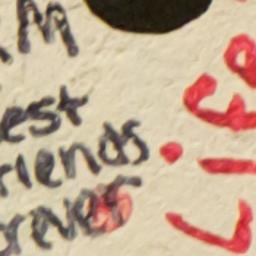 M
est
riends
rever
Life